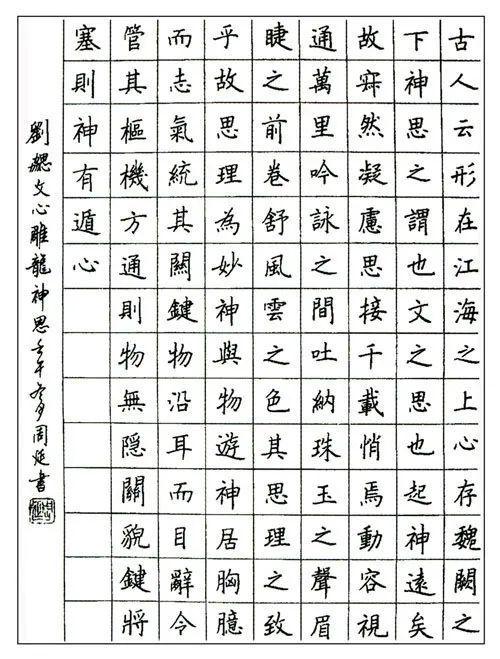 古人云形在江海之上心存魏闕之
下神思之謂也文之思也起神遠矣
故寂然凝慮思接千載悄焉動容視
通萬里吟詠之間吐納珠玉之聲眉
睫之前卷舒風雲之色其思理之致
乎故思理為妙神與物遊神居胸臆
而志氣統其關鍵物沿耳而目辭令
管其樞機方通則物無隱關貌鍵將
塞則神有遁心
劉勰文心雕龍神思壬午周延書